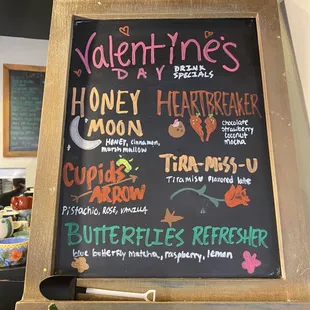 Valentine's
DAY DRINK
SPECIALS
HONEY
MOON
HONEY, cinnamon,
marshmallow
HEARTBREAKER
chocolate
strawberry
coconut
mocha
Cupids
ARROW
Pistachio, ROSE, VANILLA
TiRA-MiSS-U
Tiramisu flavored latte
BUTTERFLIES REFRESHER
blue butterfly matcha, raspberry, lemon